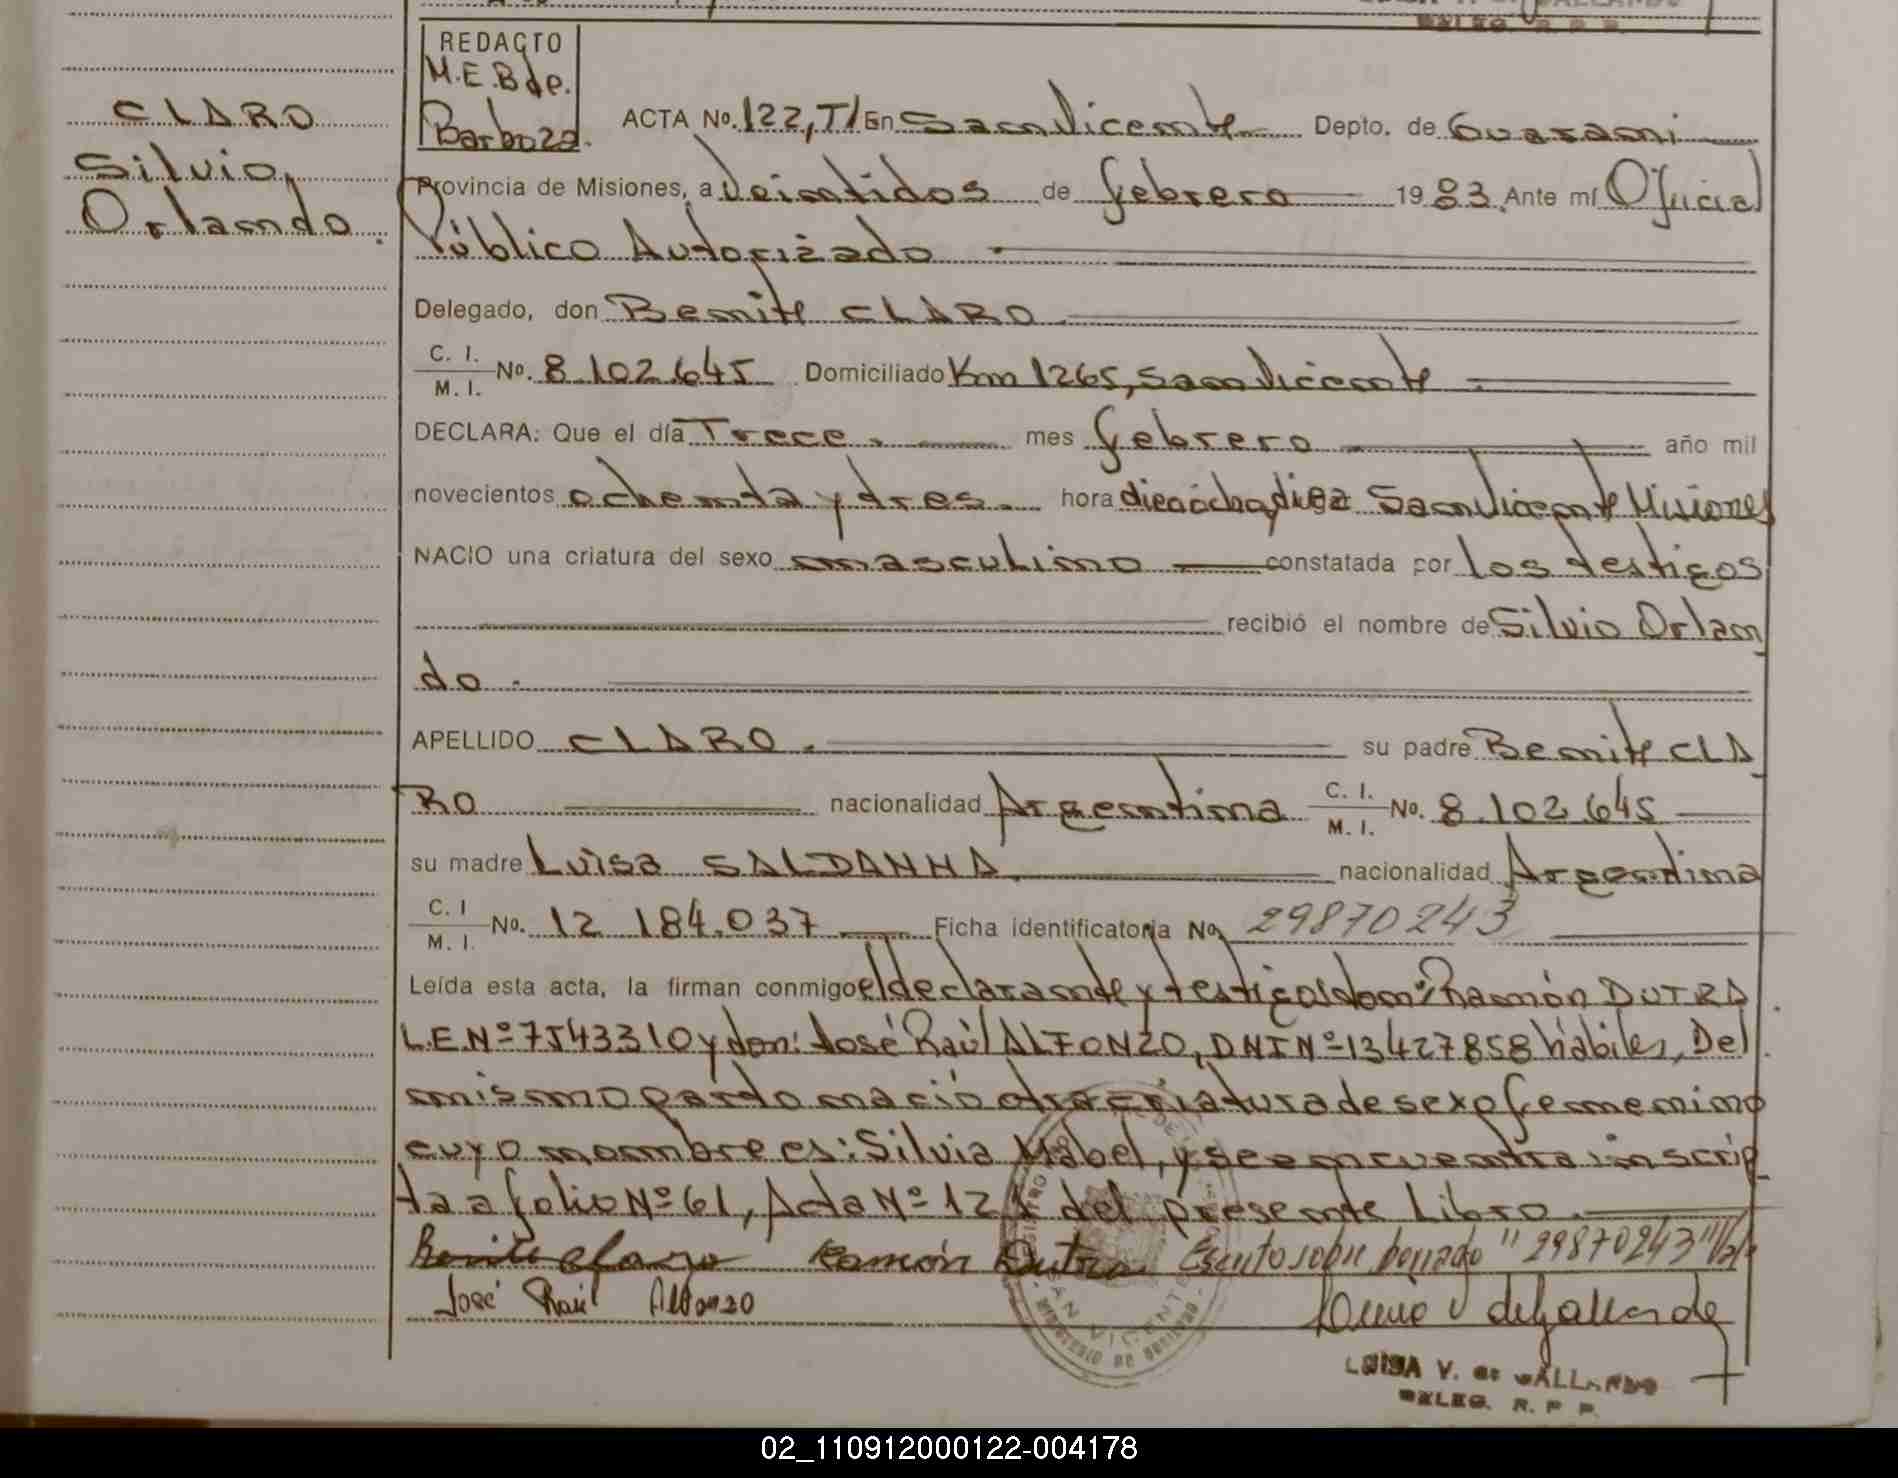 REDACTO
M.E.B de.
Barboza.
CLARO
Silvio,
Orlando.
ACTA No. 122, TI En San Vicente Depto. de Guaraní
Provincia de Misiones, a Veintidos de febrero 1983. Ante mí Oficial
Público Autorizado
Delegado, don Benite CLARO
C. I. / M. I. No. 8.102.645 Domiciliado Km 1265, San Vicente
DECLARA: Que el día Trece. mes febrero año mil
novecientos ochenta y tres. hora dieciocho, diez San Vicente Misiones
NACIO una criatura del sexo masculino constatada por los testigos
recibió el nombre de Silvio Orlan
do.
APELLIDO CLARO. su padre Benite CLA
RO nacionalidad Argentina C. I. / M. I. No. 8.102.645
su madre Luisa SALDANHA nacionalidad Argentina
C. I / M. I. No. 12 184.037 Ficha identificatoria No. 29870243
Leída esta acta, la firman conmigo el declarante y testigos don: Ramón DUTRA
L.E.Nº 7543310 y don: José Raúl ALFONZO, DNI Nº 13427858 hábiles, Del
mismo parto nació otra criatura de sexo femenino
cuyo nombre es: Silvia Mabel, y se encuentra inscrip
ta a folio Nº 61, Acta Nº 121 del presente Libro.
Benite Claro Ramón Dutra Escrito sobre borrado "29870243" Vale
José Raúl Alfonzo
SAN VICENTE
MINISTERIO DE GOBIERNO
LUISA V. de GALLARDO
DELEG. R. P. P.
02_110912000122-004178